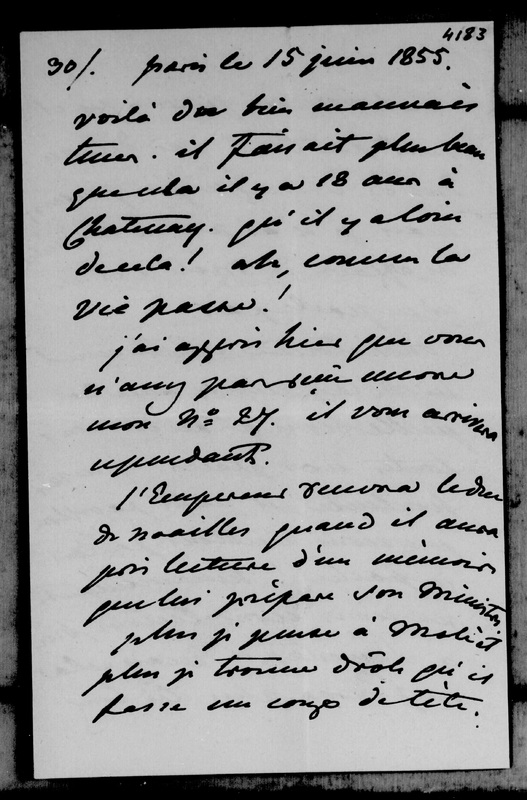 4183
30/. paris le 15 juin 1855.
voilà du bien mauvais
tems. il faisait plus beau
que cela il y a 18 ans à
Chatenay. qu'il y a loin
de cela! ah, comme la
vie passe!
j'ai appris hier que vous
n'avez pas reçu encore
mon No 27. il vous arrivera
cependant.
l'Empereur reverra le duc
de noailles quand il aura
pris lecture d'un mémoire
que lui prépare son Ministre
plus je pense à
plus je trouve drôle qu'il
fasse un coup de tête.